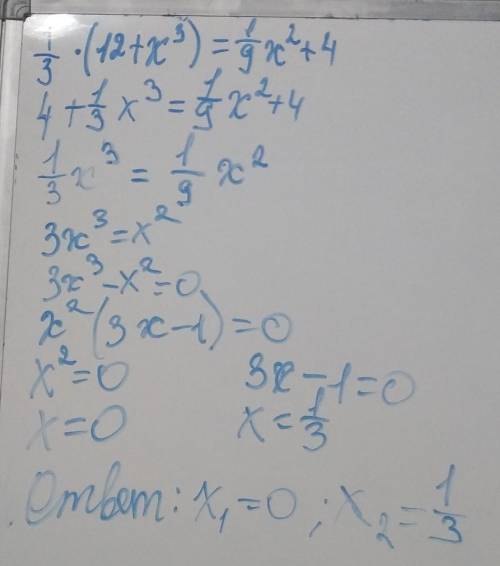 1/3 · (12 + x³) = 1/9 x² + 4
4 + 1/3 x³ = 1/9 x² + 4
1/3 x³ = 1/9 x²
3x³ = x²
3x³ - x² = 0
x² (3x - 1) = 0
x² = 0 3x - 1 = 0
x = 0 x = 1/3
Ответ: x₁ = 0 ; x₂ = 1/3